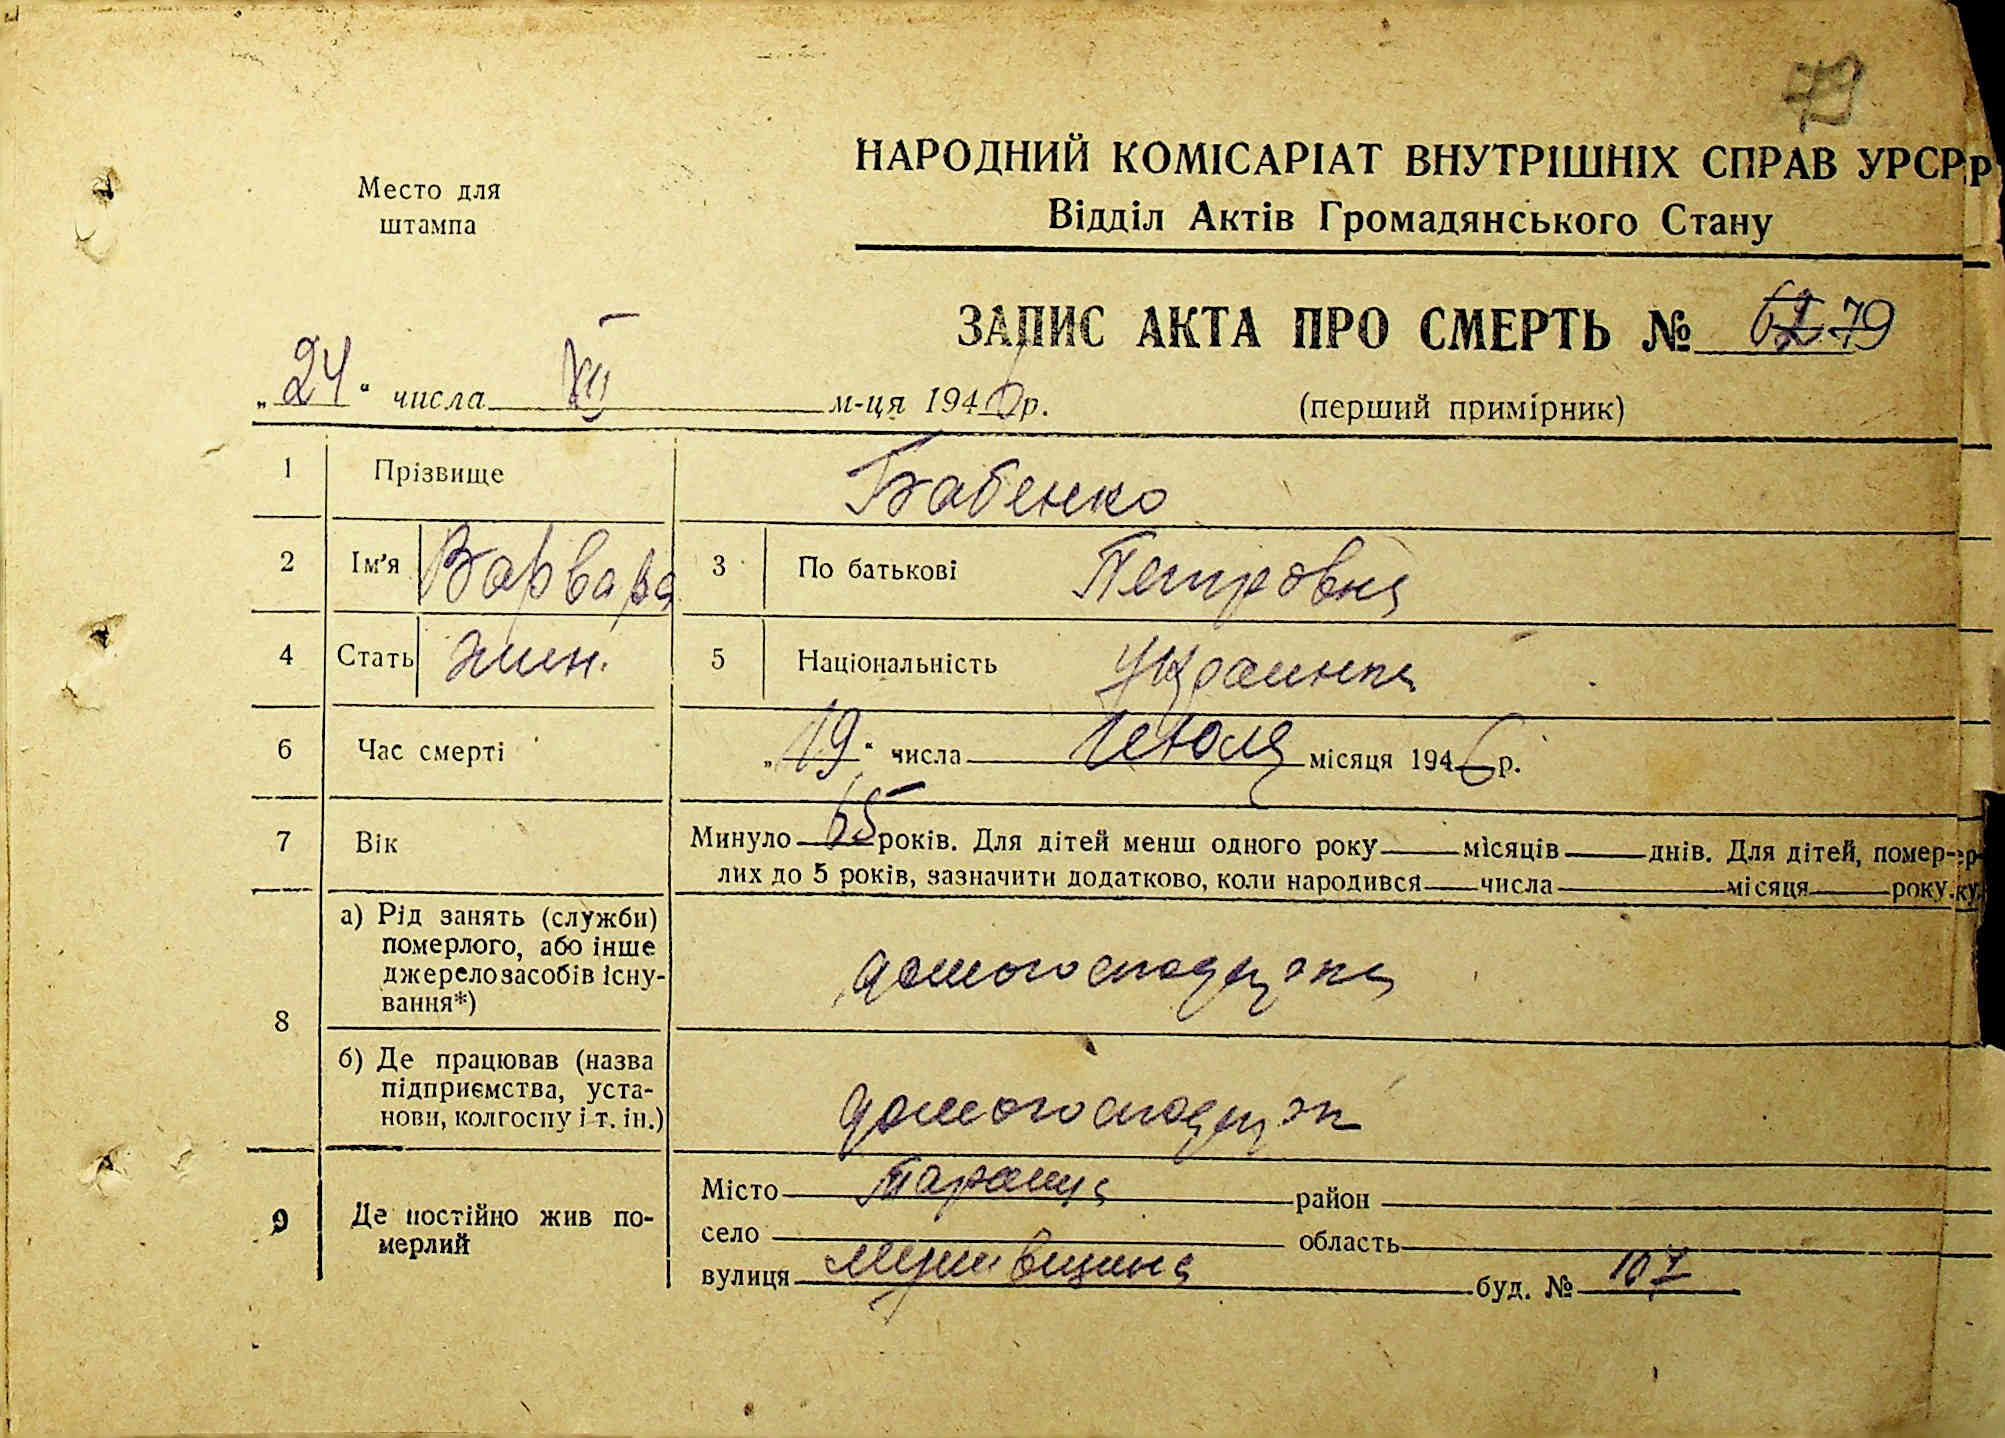 79
НАРОДНИЙ КОМІСАРІАТ ВНУТРІШНІХ СПРАВ УРСР
Место для
штампа
Відділ Актів Громадянського Стану
ЗАПИС АКТА ПРО СМЕРТЬ № 62 79
„24“ числа XII м-ця 1946 р.
(перший примірник)
1 Прізвище Бабенко
2 Ім'я Варвара 3 По батькові Петровна
4 Стать жен. 5 Національність Украинка
6 Час смерті „19“ числа Июля місяця 1946 р.
7 Вік Минуло 65 років. Для дітей менш одного року місяців днів. Для дітей, помер-
лих до 5 років, зазначити додатково, коли народився числа місяця року.
8 а) Рід занять (служби)
померлого, або інше
джерело засобів існу-
вання*)
б) Де працював (назва
підприємства, уста-
нови, колгоспу і т. ін.)
9 Де постійно жив по-
мерлий
Місто Тараща район
село область
вулиця буд. № 107